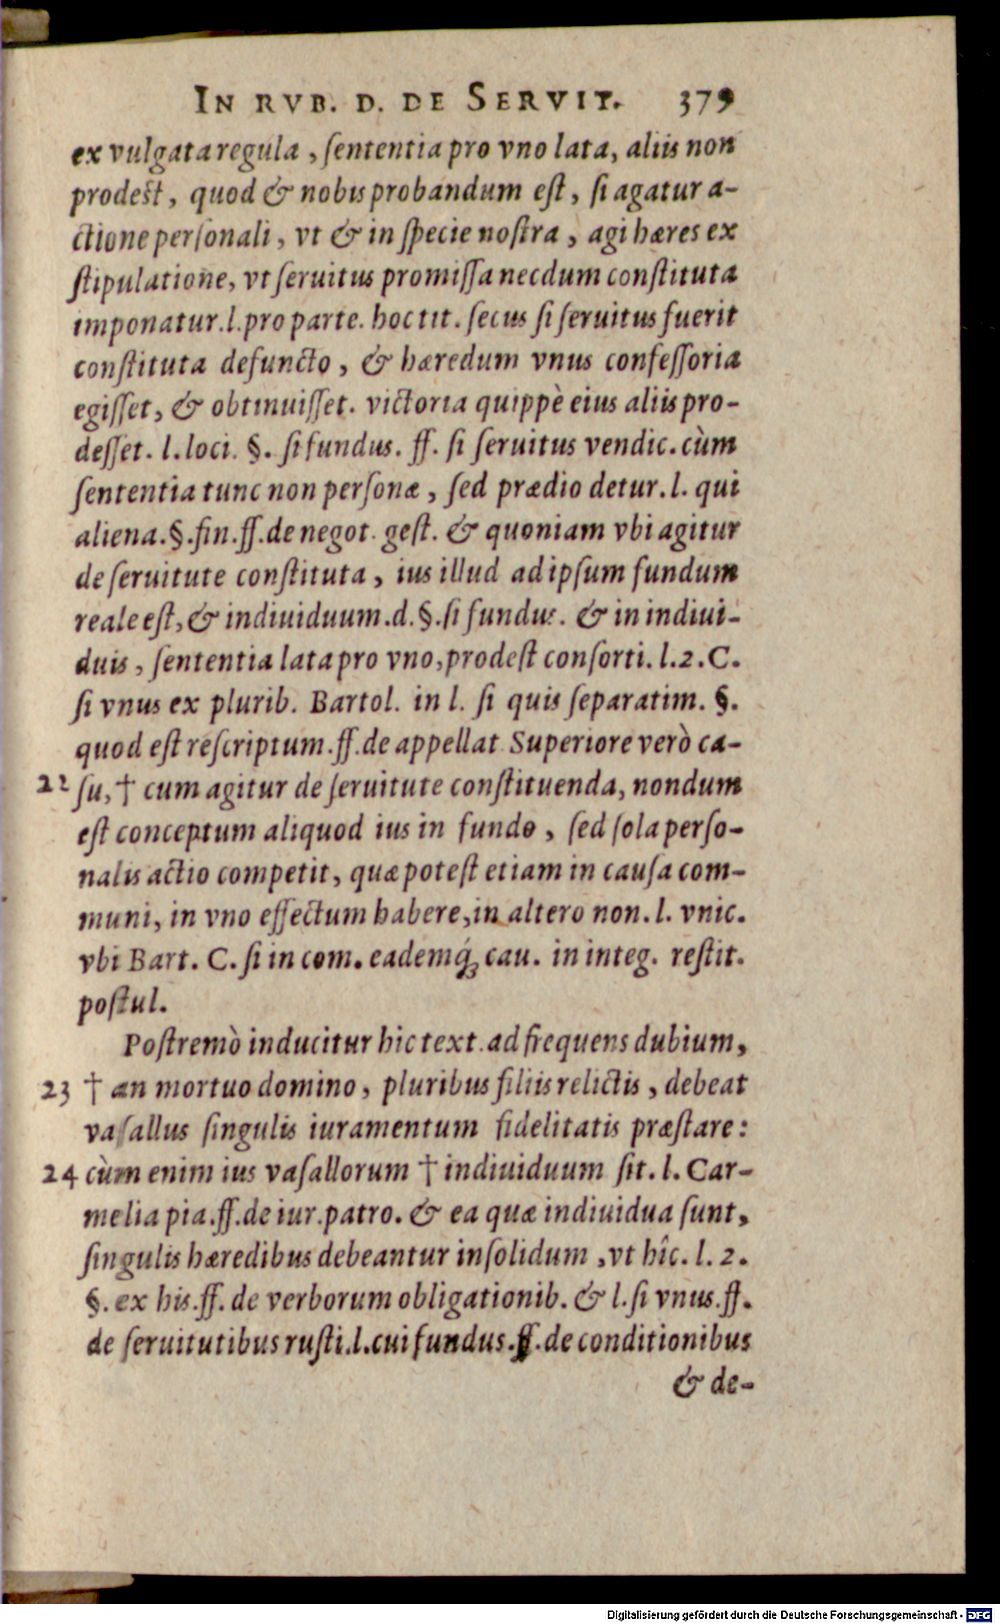 IN RVB. D. DE SERVIT. 379
ex vulgata regula, ſententia pro vno lata, aliis non
prodest, quod & nobis probandum eſt, ſi agatur a-
ctione perſonali, vt & in ſpecie noſtra, agi hæres ex
ſtipulatione, vt ſeruitus promiſſa necdum conſtituta
imponatur. l. pro parte. hoc tit. ſecus ſi ſeruitus fuerit
conſtituta defuncto, & hæredum vnus confeſſoria
egiſſet, & obtinuiſſet. victoria quippè eius aliis pro-
deſſet. l. loci. §. ſi fundus. ff. ſi ſeruitus vendic. cùm
ſententia tunc non perſonæ, ſed prædio detur. l. qui
aliena. §. fin. ff. de negot. geſt. & quoniam vbi agitur
de ſeruitute conſtituta, ius illud ad ipſum fundum
reale eſt, & indiuiduum. d. §. ſi fundus. & in indiui-
duis, ſententia lata pro vno, prodeſt conſorti. l. 2. C.
ſi vnus ex plurib. Bartol. in l. ſi quis ſeparatim. §.
quod eſt reſcriptum. ff. de appellat. Superiore verò ca-
22 ſu, † cum agitur de ſeruitute conſtituenda, nondum
eſt conceptum aliquod ius in fundo, ſed ſola perſo-
nalis actio competit, quæ poteſt etiam in cauſa com-
muni, in vno effectum habere, in altero non. l. vnic.
vbi Bart. C. ſi in com. eademq́ꝫ cau. in integ. reſtit.
poſtul.
Poſtremò inducitur hic text. ad frequens dubium,
23 † an mortuo domino, pluribus filiis relictis, debeat
vaſallus ſingulis iuramentum fidelitatis præſtare:
24 cùm enim ius vaſallorum † indiuiduum ſit. l. Car-
melia pia. ff. de iur. patro. & ea quæ indiuidua ſunt,
ſingulis hæredibus debeantur inſolidum, vt hîc. l. 2.
§. ex his. ff. de verborum obligationib. & l. ſi vnus. ff.
de ſeruitutibus ruſti. l. cui fundus. ff. de conditionibus
& de-
Digitalisierung gefördert durch die Deutsche Forschungsgemeinschaft - DFG